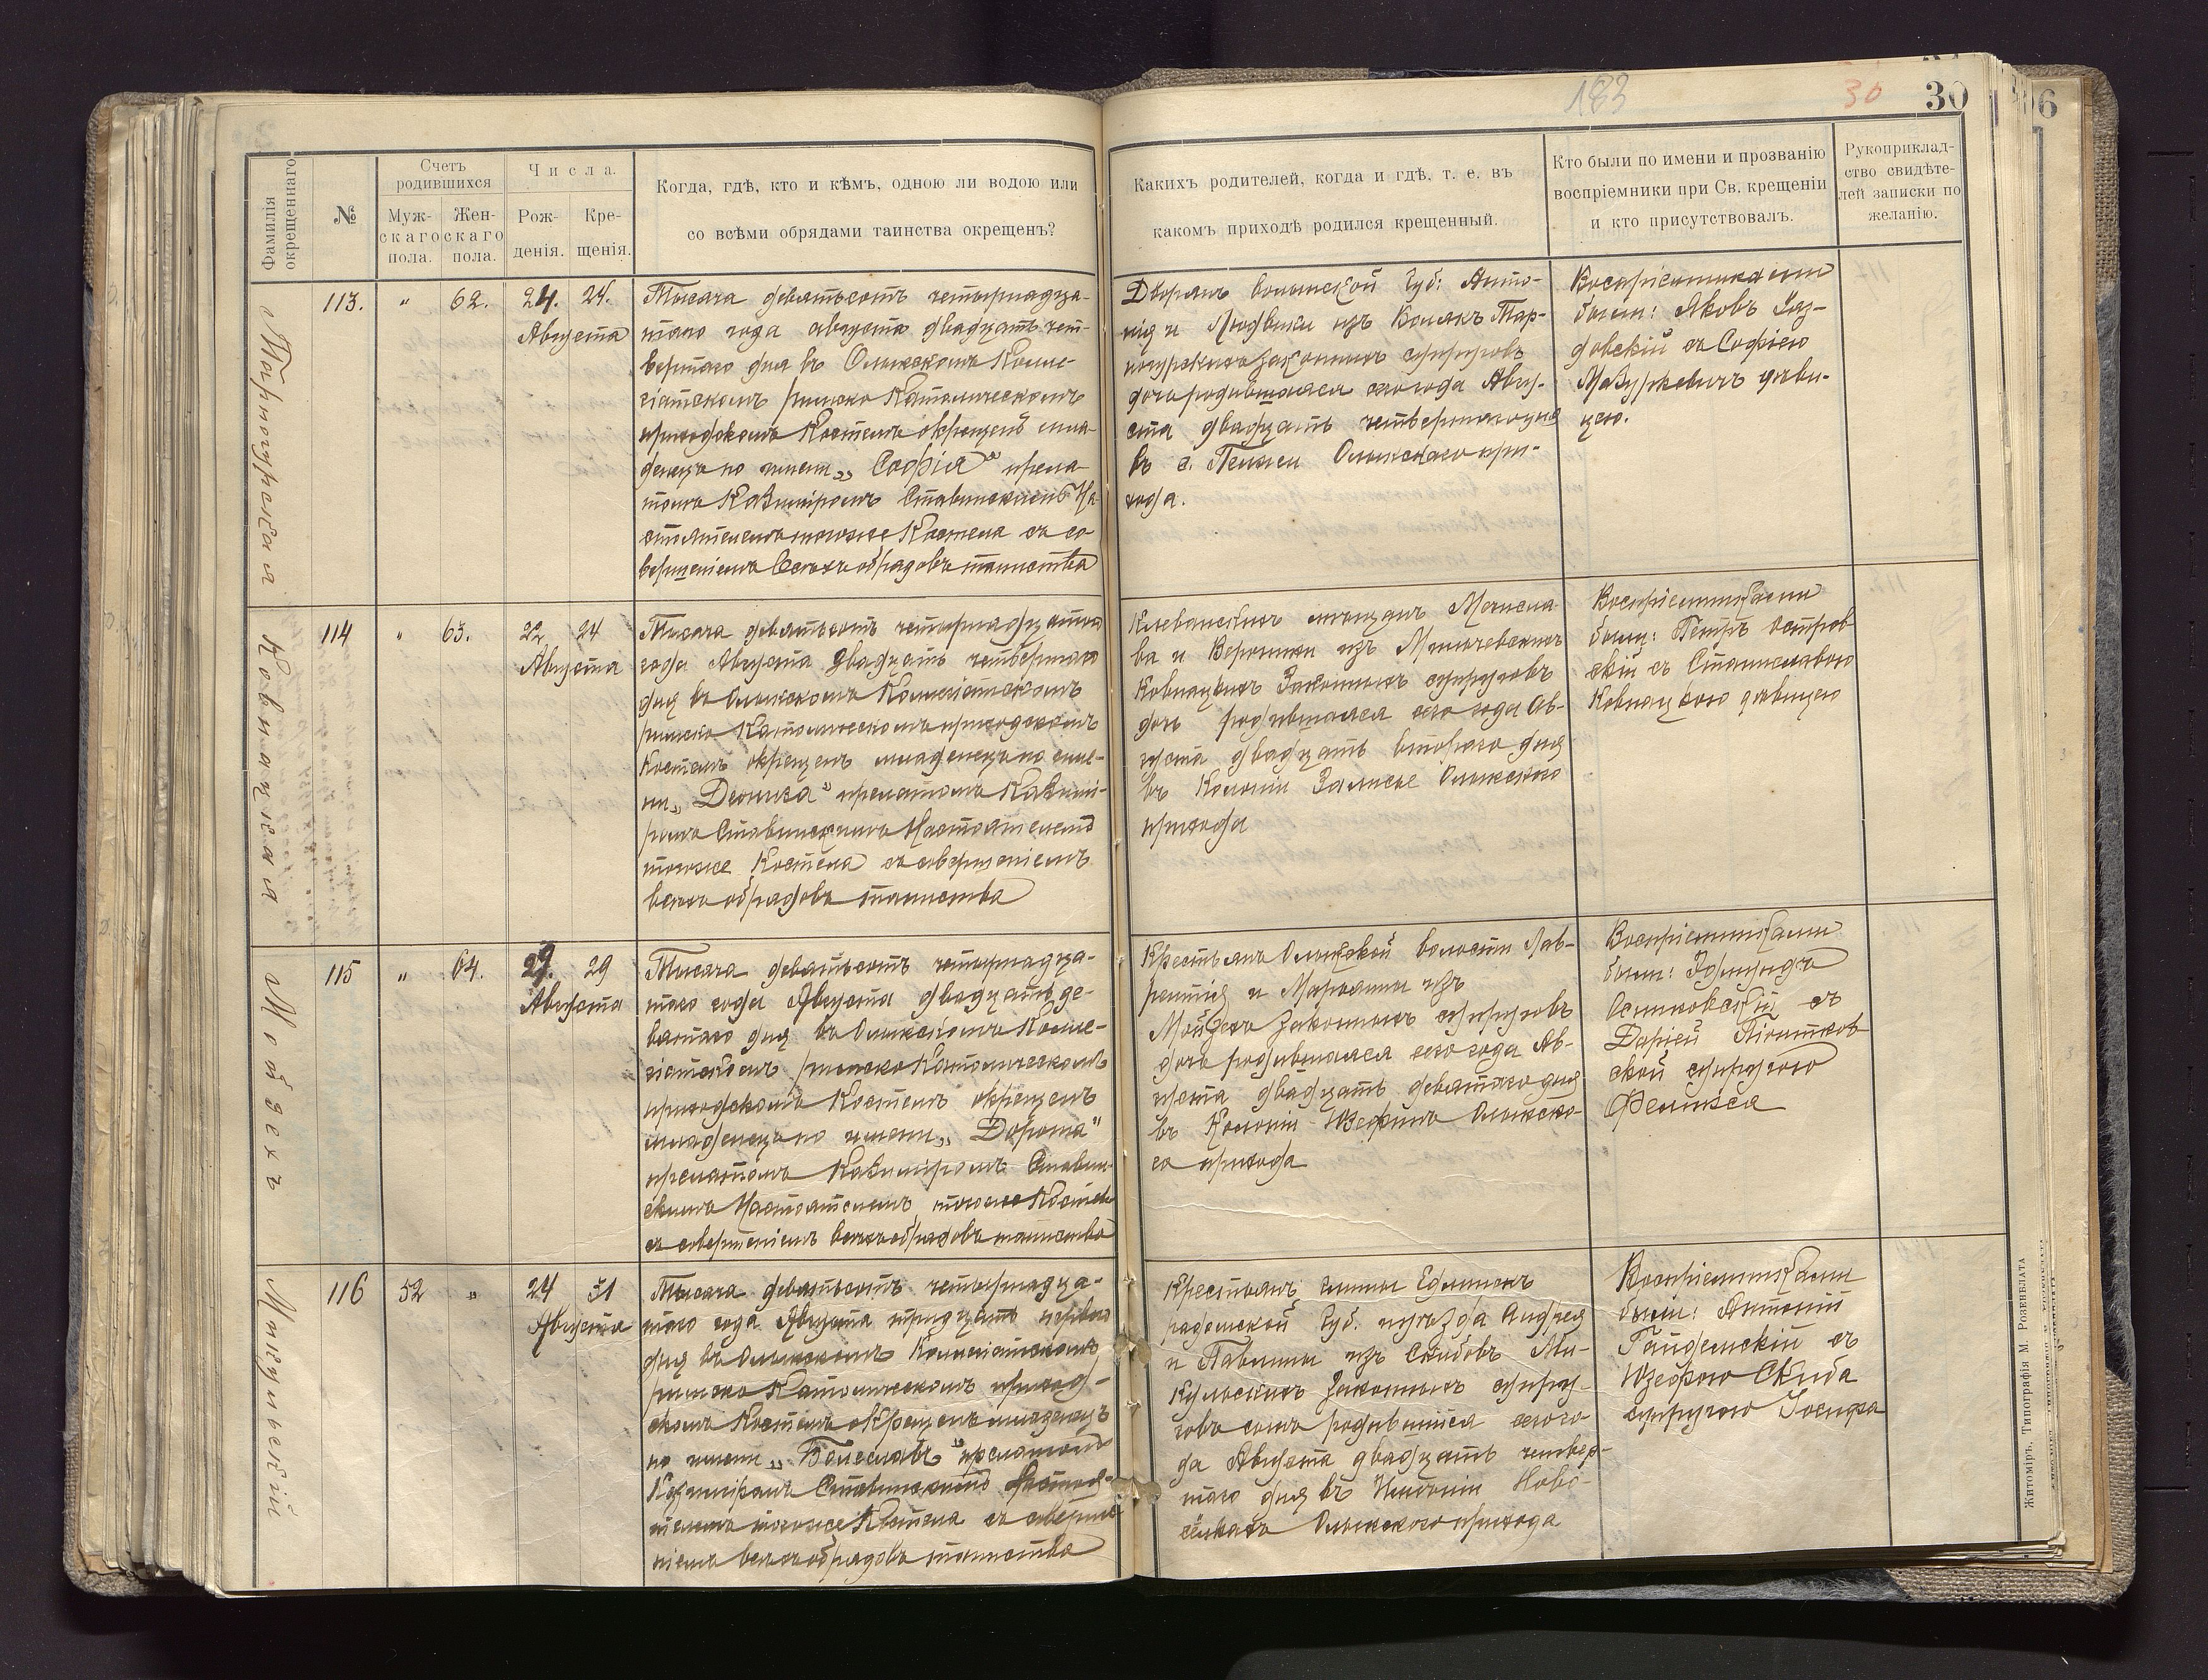 183
30
30
6
Фамилія
окрещеннаго
№
Счетъ
родившихся
Муж-
скаго
пола.
Жен-
скаго
пола.
Числа.
Рож-
денія.
Кре-
щенія.
Когда, гдѣ, кто и кѣмъ, одною ли водою или
со всѣми обрядами таинства окрещенъ?
Каких родителей, когда и гдѣ, т. е. въ
какомъ приходѣ родился крещенный.
Кто были по имени и прозванію
воспріемники при Св. крещеніи
и кто присутствовалъ.
Рукоприклад-
ство свидѣте-
лей записки по
желанію.
Тарногурская
113.
"
62.
24.
24.
Августа
Тысяча девятьсотъ четырнадца-
таго года августа двадцать чет-
вертаго дня въ Олыкскомъ Колле-
гіатскомъ римско Католическомъ
приходскомъ Костелѣ окрещенъ мла-
денецъ по имени „София" прела-
томъ Казиміромъ Ставинскимъ На-
стоятелемъ тогоже Костела съ со-
вершеніемъ Всѣхъ обрядовъ таинства
Дворянъ волынской Губ: Анто-
нія и Людвики изъ Тар-
ногурскихъ Законныхъ супруговъ
дочь родившаяся сего года Авгу-
ста двадцать четвертаго дня
въ с. Олыкскаго при-
хода.
Воспріемниками
были: Яковъ
съ Софіею
Мазуркевичъ дѣви-
цею.
Ковнацкая
114
"
63.
22
24
Августа
Тысяча девятьсотъ четырнадцатаго
года Августа двадцать четвертаго
дня въ Олыкскомъ Коллегіатскомъ
римско Католическомъ приходскомъ
Костелѣ окрещенъ младенецъ по име-
ни „Деониза" прелатомъ Казимі-
ромъ Ставинскимъ Настоятелемъ
тогоже Костела съ совершеніемъ
всѣхъ обрядовъ таинства
Клеванскихъ мѣщанъ Мечисла-
ва и Вероники изъ
Ковнацкихъ Законныхъ супруговъ
дочь родившаяся сего года Ав-
густа двадцать втораго дня
въ Колоніи Залисье Олыкскаго
прихода
Воспріемниками
были: Петръ Остров-
скій съ Станиславою
Ковнацкою дѣвицею
Мойзехъ
115
"
64.
29.
29
Августа
Тысяча девятьсотъ четырнадца-
таго года Августа двадцать де-
вятаго дня въ Олыкскомъ Колле-
гіатскомъ римско Католическомъ
приходскомъ Костелѣ окрещенъ
младенецъ по имени „Дорота"
прелатомъ Казиміромъ Ставин-
скимъ Настоятелемъ тогоже Костела
съ совершеніемъ всѣхъ обрядовъ таинства
Крестьянъ Олыкской волости Лав-
рентія и Марьянны изъ
Мойзехъ Законныхъ супруговъ
дочь родившаяся сего года Ав-
густа двадцать девятаго дня
въ Колоніи Юзефинъ Олыкска-
го прихода
Воспріемниками
были: Эдмундъ
Осинковскій съ
Дарьей Піонтков-
ской супругою
Феликса
Микульскій
116
52
"
24
31
Августа
Тысяча девятьсотъ четырнадца-
таго года Августа тридцать перваго
дня въ Олыкскомъ Коллегіатскомъ
римско Католическомъ приход-
скомъ Костелѣ окрещенъ младенецъ
по имени „Болеславъ" прелатомъ
Казиміромъ Ставинскимъ Настоя-
телемъ тогоже Костела съ соверше-
ніемъ всѣхъ обрядовъ таинства
Крестьянъ гмины Едлинскъ
радомской Губ. и уѣзда Андрея
и Павлины изъ Скибовъ Ми-
кульскихъ Законныхъ супру-
говъ сынъ родившійся сего го-
да Августа двадцать четвер-
таго дня въ Имѣніи Ново-
сёлкахъ Олыкскаго прихода
Воспріемниками
были: Антоній
Гайдемскій съ
Юзефою Скиба
супругою Іосифа
Житоміръ, Типографія М. Розенблата